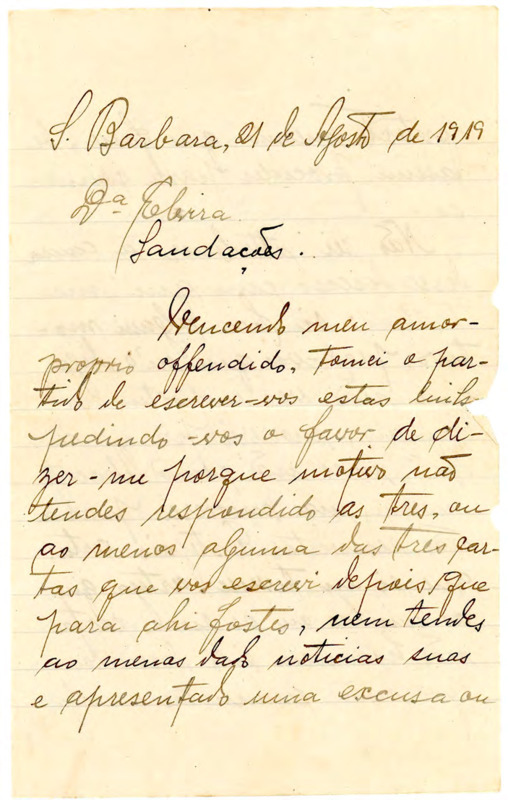 S. Barbara, 21 de Agosto de 1919
Dª Elvira
Saudações.
Vencendo meu amor-
proprio offendido, tomei o par-
tido de escrever-vos estas linhs
pedindo-vos o favor de di-
zer-me porque motivo não
tendes respondido as tres, ou
ao menos alguma das tres car-
tas que vos escrevi depois que
para ahi fostes, nem tendes
ao menos dado noticias suas
e apresentado uma excusa ou